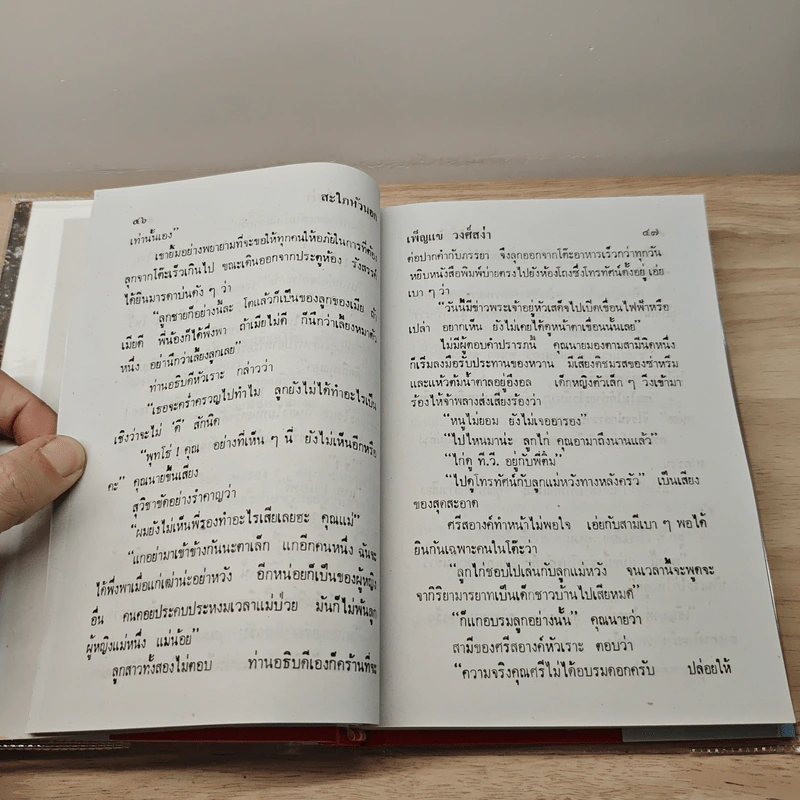 ๔๖
สะใภ้หัวนอก
เท่านั้นเอง”
เขายิ้มอย่างพยายามที่จะขอให้ทุกคนให้อภัยในการที่ต้อง
ลุกจากโต๊ะเร็วเกินไป ขณะเดินออกจากประตูห้อง รังสรรค์
ได้ยินมารดาบ่นดัง ๆ ว่า
“ลูกชายก็อย่างนี้ละ โตแล้วก็เป็นของลูกของเมีย ถ้า
เมียดี พี่น้องก็ได้พึ่งพา ถ้าเมียไม่ดี ก็นึกว่าเลี้ยงหมาตัว
หนึ่ง อย่านึกว่าเลี้ยงลูกเลย”
ท่านอธิบดีหัวเราะ กล่าวว่า
“เธอจะคร่ำครวญไปทำไม ลูกยังไม่ได้ทำอะไรเป็น
เชิงว่าจะไม่ ‘ดี’ สักนิด
“พุทโธ่ ! คุณ อย่างที่เห็น ๆ นี่ ยังไม่เห็นอีกหรือ
คะ” คุณนายขึ้นเสียง
สุวิชาขัดอย่างรำคาญว่า
“ผมยังไม่เห็นพี่รองทำอะไรเสียเลยฮะ คุณแม่”
“แกอย่ามาเข้าข้างกันนะตาเล็ก แกอีกคนหนึ่ง ฉันจะ
ได้พึ่งพาเมื่อแก่เฒ่าน่ะอย่าหวัง อีกหน่อยก็เป็นของผู้หญิง
อื่น คนคอยประคบประหงมเวลาแม่ป่วย มันก็ไม่พ้นลูก
ผู้หญิงแม่หนึ่ง แม่น้อย”
ลูกสาวทั้งสองไม่ตอบ ท่านอธิบดีเองก็คร้านที่จะ
เพ็ญแข วงศ์สง่า
๔๗
ต่อปากคำกับภรรยา จึงลุกออกจากโต๊ะอาหารเร็วกว่าทุกวัน
หยิบหนังสือพิมพ์บ่ายตรงไปยังห้องโถงซึ่งโทรทัศน์ตั้งอยู่ เอ่ย
เบา ๆ ว่า
“วันนี้มีข่าวพระเจ้าอยู่หัวเสด็จไปเปิดเขื่อนไฟฟ้าหรือ
เปล่า อยากเห็น ยังไม่เคยได้ดูหน้าตาเขื่อนนั้นเลย”
ไม่มีผู้ตอบคำปรารภนี้ คุณนายมองตามสามีนิดหนึ่ง
ก็เริ่มลงมือรับประทานของหวาน มีเสียงติชมรสของซ่าหริ่ม
และแห้วต้มน้ำตาลอยู่อึงอล เด็กหญิงตัวเล็ก ๆ วิ่งเข้ามา
ร้องไห้จ้าพลางส่งเสียงร้องว่า
“หนูไม่ยอม ยังไม่เจออารอง”
“ไปไหนมาน่ะ ลูกไก่ คุณอามาถึงนานแล้ว”
“ไก่ดู ที.วี. อยู่กับพี่ติ๋ม”
“ไปดูโทรทัศน์กับลูกแม่หวังทางหลังครัว” เป็นเสียง
ของสุดสะอาด
ศรีสอางค์ทำหน้าไม่พอใจ เอ่ยกับสามีเบา ๆ พอได้
ยินกันเฉพาะคนในโต๊ะว่า
“ลูกไก่ชอบไปเล่นกับลูกแม่หวัง จนเวลานี้จะพูดจะ
จากิริยามารยาทเป็นเด็กชาวบ้านไปเสียหมด”
“ก็แกอบรมลูกอย่างนั้น” คุณนายว่า
สามีของศรีสอางค์หัวเราะ ตอบว่า
“ความจริงคุณศรีไม่ได้อบรมดอกครับ ปล่อยให้